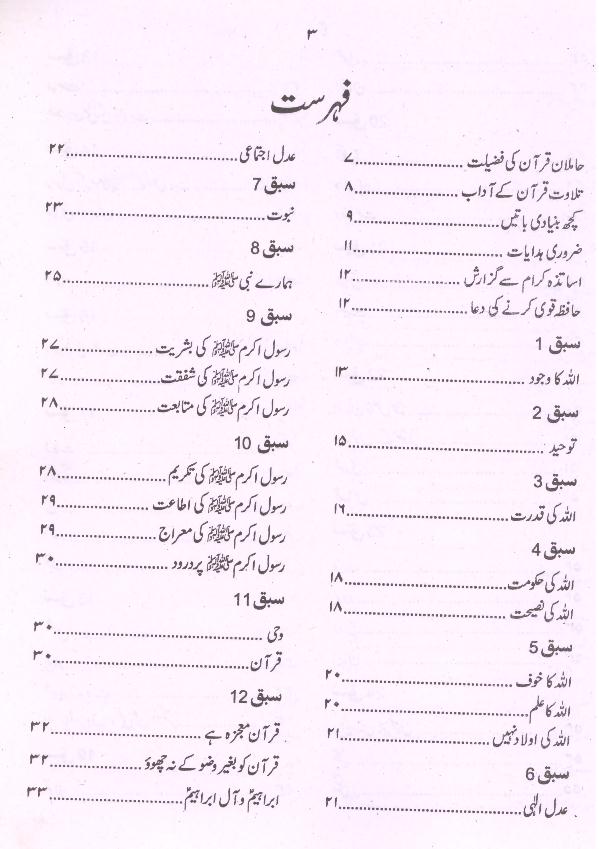 ۳
فہرست
حاملان قرآن کی فضیلت ........................ ۷
تلاوت قرآن کے آداب ........................ ۸
کچھ بنیادی باتیں ........................ ۹
ضروری ہدایات ........................ ۱۱
اساتذہ کرام سے گزارش ........................ ۱۲
حافظہ قوی کرنے کی دعا ........................ ۱۲
سبق 1
اللہ کا وجود ........................ ۱۳
سبق 2
توحید ........................ ۱۵
سبق 3
اللہ کی قدرت ........................ ۱۶
سبق 4
اللہ کی حکومت ........................ ۱۸
اللہ کی نصیحت ........................ ۱۸
سبق 5
اللہ کا خوف ........................ ۲۰
اللہ کا علم ........................ ۲۰
اللہ کی اولاد نہیں ........................ ۲۱
سبق 6
عدل الٰہی ........................ ۲۱
عدل اجتماعی ........................ ۲۲
سبق 7
نبوت ........................ ۲۳
سبق 8
ہمارے نبی ﷺ ........................ ۲۵
سبق 9
رسول اکرم ﷺ کی بشریت ........................ ۲۷
رسول اکرم ﷺ کی شفقت ........................ ۲۷
رسول اکرم ﷺ کی متابعت ........................ ۲۸
سبق 10
رسول اکرم ﷺ کی تکریم ........................ ۲۸
رسول اکرم ﷺ کی اطاعت ........................ ۲۹
رسول اکرم ﷺ کی معراج ........................ ۲۹
رسول اکرم ﷺ پر درود ........................ ۳۰
سبق 11
وحی ........................ ۳۰
قرآن ........................ ۳۰
سبق 12
قرآن معجزہ ہے ........................ ۳۲
قرآن کو بغیر وضو کے نہ چھوؤ ........................ ۳۲
ابراہیمؑ و آل ابراہیمؑ ........................ ۳۳